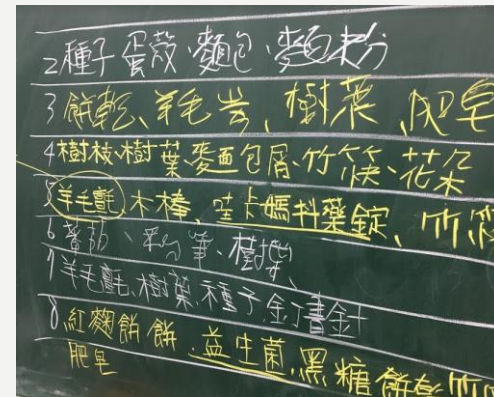 2種子 蛋殼、麵包、麵粉
3餅乾、羊毛 、樹葉、肥皂
4樹枝、樹葉、麥面包屑、竹筷、花朵
5羊毛氈、木棒、 卡媽科藥錠、竹筷
6 、粉筆、樹葉、
7羊毛氈、樹葉、種子、釘書針
8紅麴餅餅、益生菌、黑糖餅乾 竹
肥皂